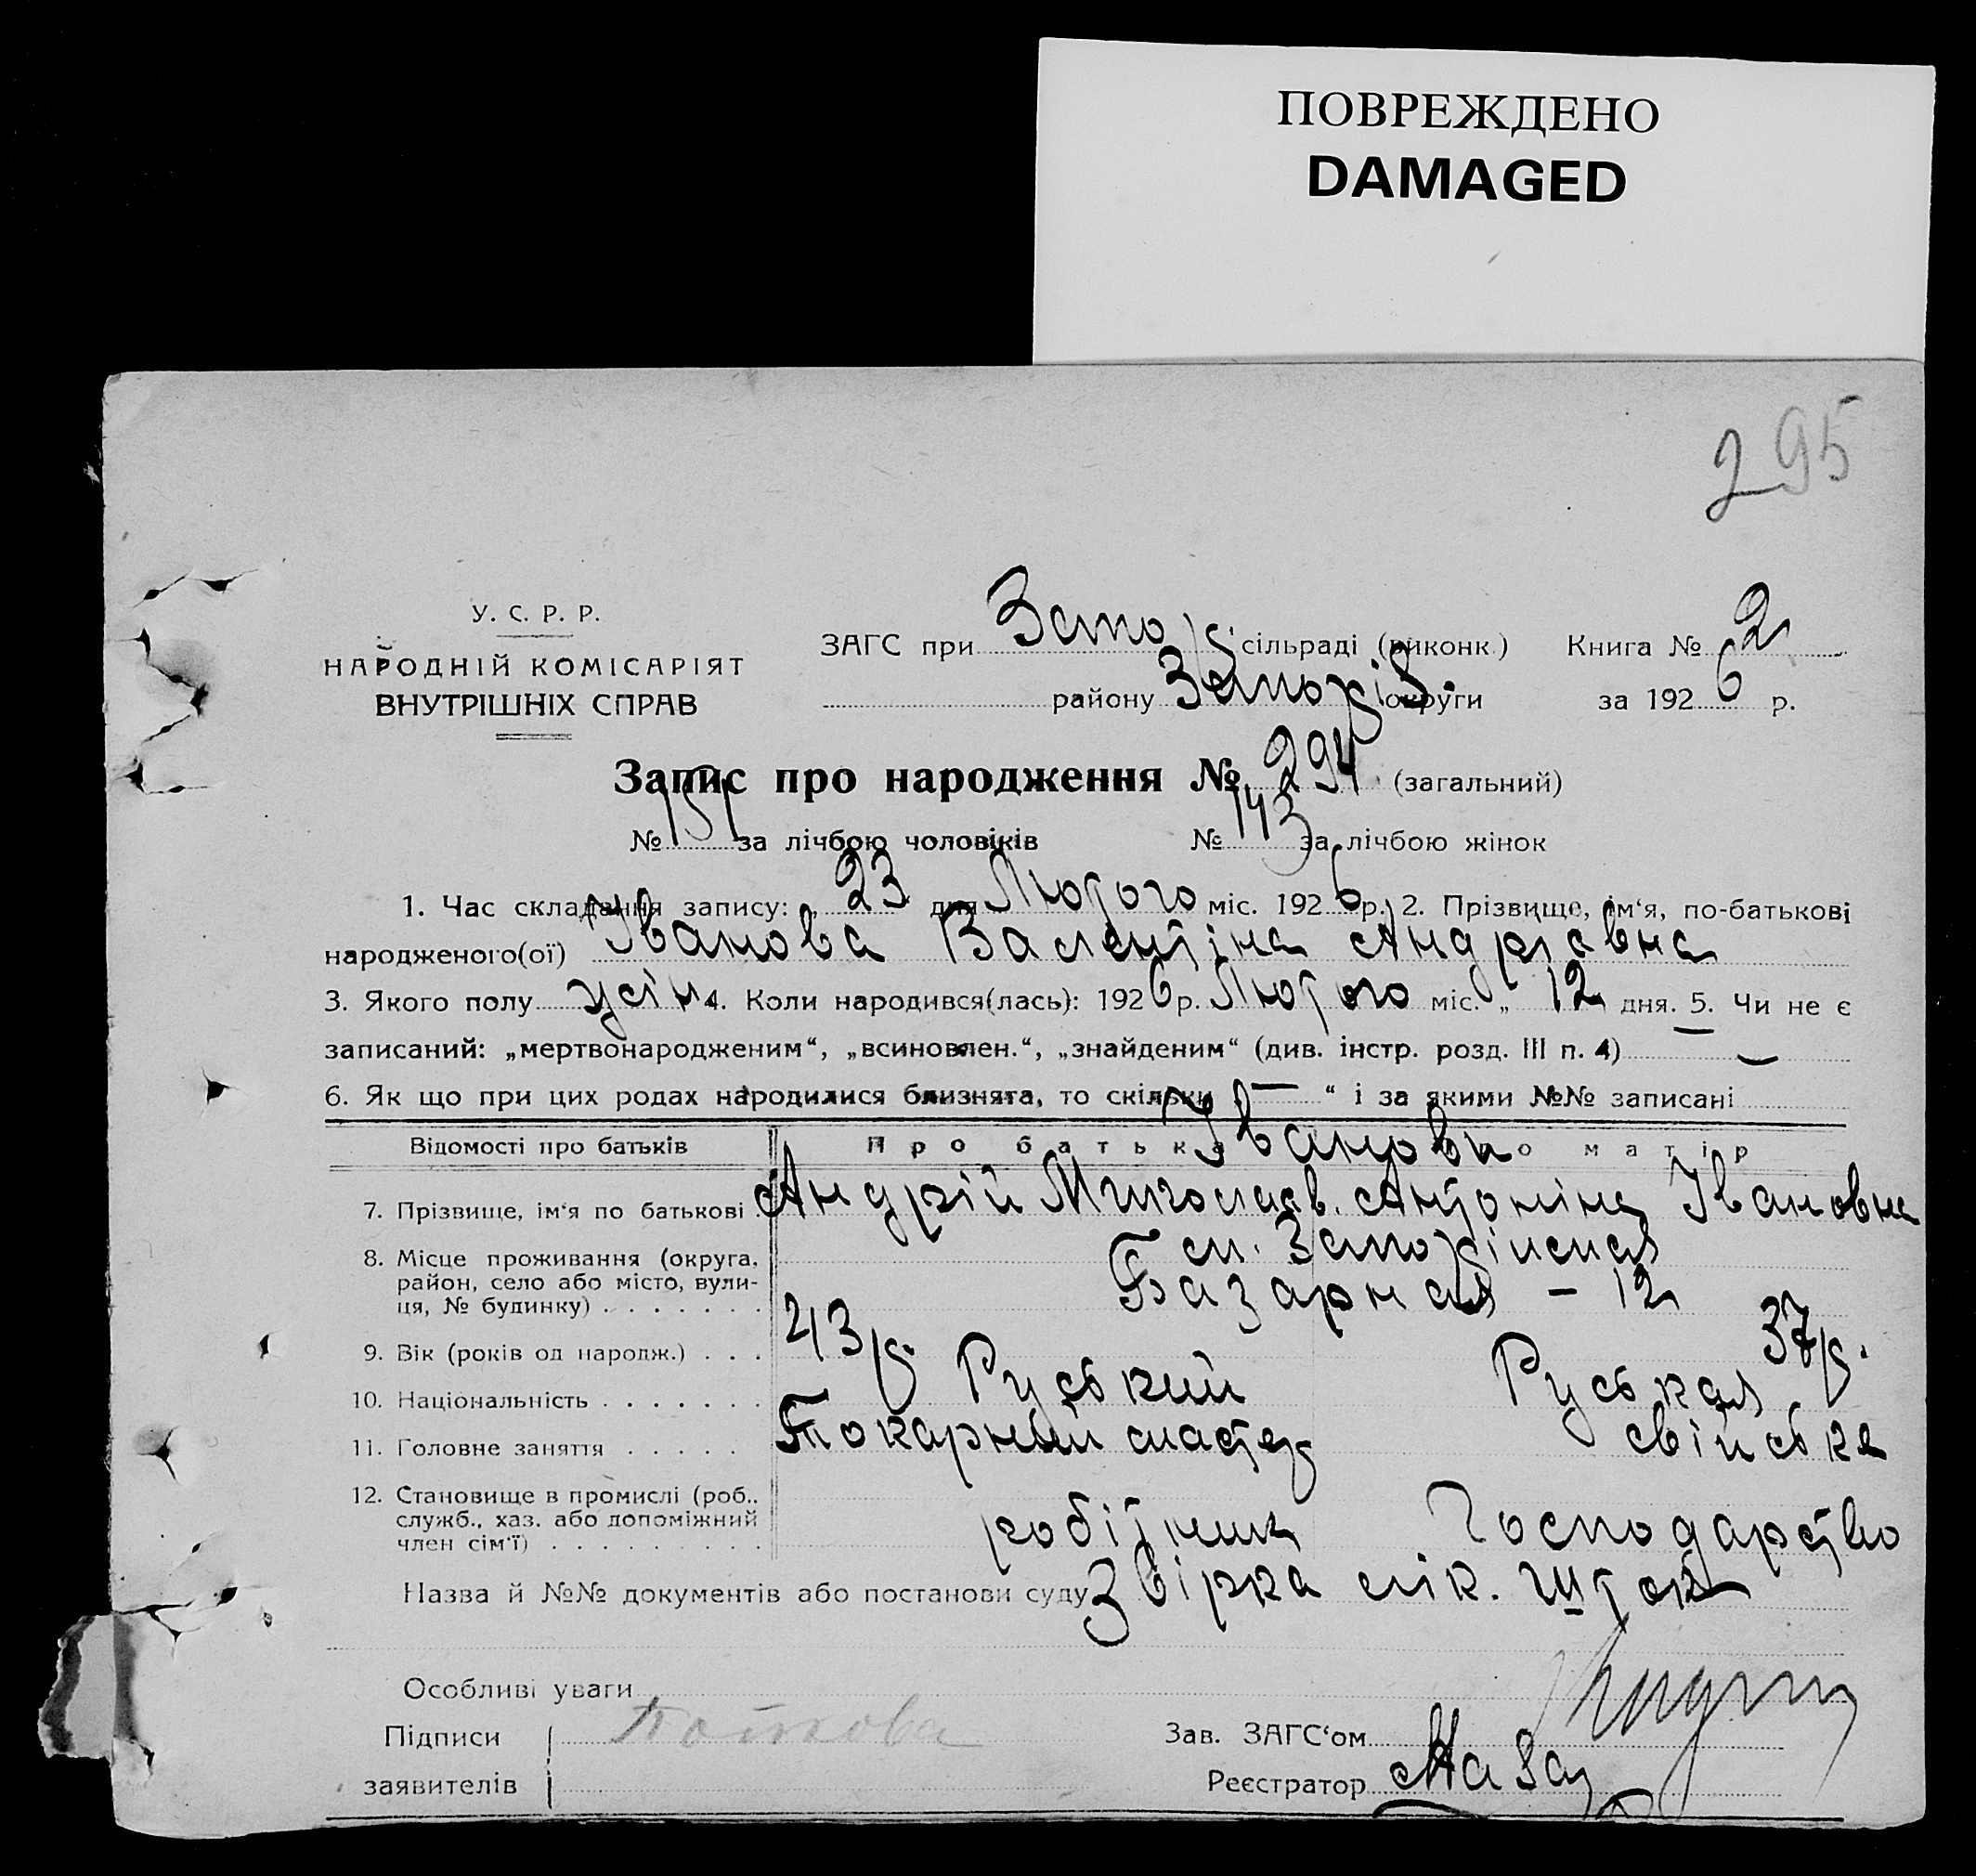 ПОВРЕЖДЕНО
DAMAGED
295
У. С. Р. Р.
НАРОДНІЙ КОМІСАРІЯТ
ВНУТРІШНІХ СПРАВ
ЗАГС при Запор. сільраді (виконк.) Книга № 2
району Запоріз. округи за 1926 р.
Запис про народження № 294 (загальний)
№ 151 за лічбою чоловіків № 143 за лічбою жінок
1. Час складання запису: „ 23 дня Лютого міс. 1926 р. 2. Прізвище, ім‘я, по-батькові
народженого(ої) Іванова Валентіна Андрієвна
3. Якого полу жін. 4. Коли народився(лась): 1926 р. Лютого міс. „ 12 дня. 5. Чи не є
записаний: „мертвонародженим“, „всиновлен.“, „знайденим“ (див. інстр. розд. III п. 4) —
6. Як що при цих родах народилися близнята, то скільки „ — “ і за якими №№ записані
Відомості про батьків Про батька Про матір
Іванови
7. Прізвище, ім‘я по батькові Андрій Миколаєв. Антоніна Івановна
8. Місце проживання (округа, район, село або місто, вули-ця, № будинку) . . . . . . . м.
Базарная – 12
9. Вік (років од народж.) . . . 43 р. 37 р.
10. Національність . . . . . . . Руський Руская
11. Головне заняття . . . . . Токарный мастер свійське
12. Становище в промислі (роб., служб., хаз. або допоміжний член сім‘ї) . . . . . . . . . робітник Господарство
Назва й №№ документів або постанови суду Звірка лік.
Особливі уваги
Підписи
заявителів
Зав. ЗАГС‘ом
Реєстратор